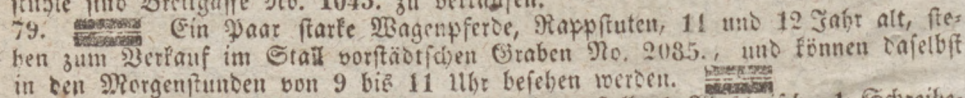 stühle sind Breitgasse No. 1043. zu verkaufen.
79. Ein Paar starke Wagenpferde, Rappstuten, 11 und 12 Jahr alt, ste-
hen zum Verkauf im Stall vorstädtschen Graben No. 2085., und können daselbst
in den Morgenstunden von 9 bis 11 Uhr besehen werden.